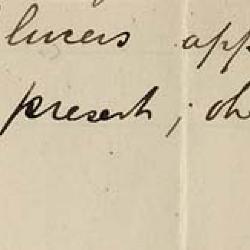 lucers app
present; oh